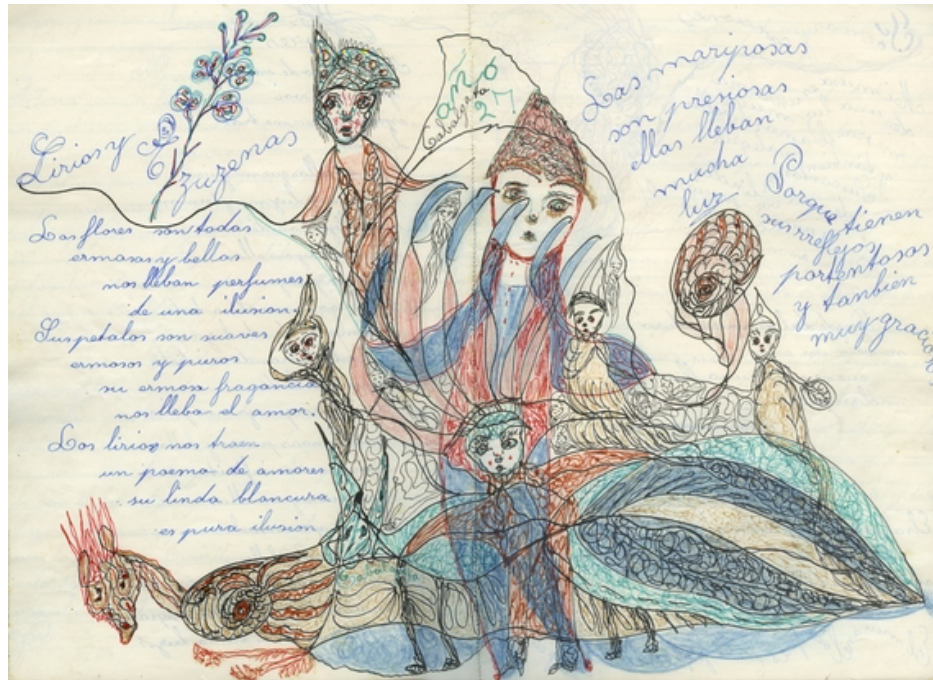 Lirios y
Ezuzenas
Las flores son todas
ermosas y bellas
nos lleban perfumes
de una ilusion.
Suspetalos son suaves
ermosos y puros
su ermosa fragancia
nos lleba el amor.
Los lirios nos traen
un poema de amores
su linda blancura
es pura ilusion
año
27
Las mariposas
son presiosas
ellas lleban
mucha
luz Porque
sus rreflejos tienen
portentosos
y tanbien
muy gracio